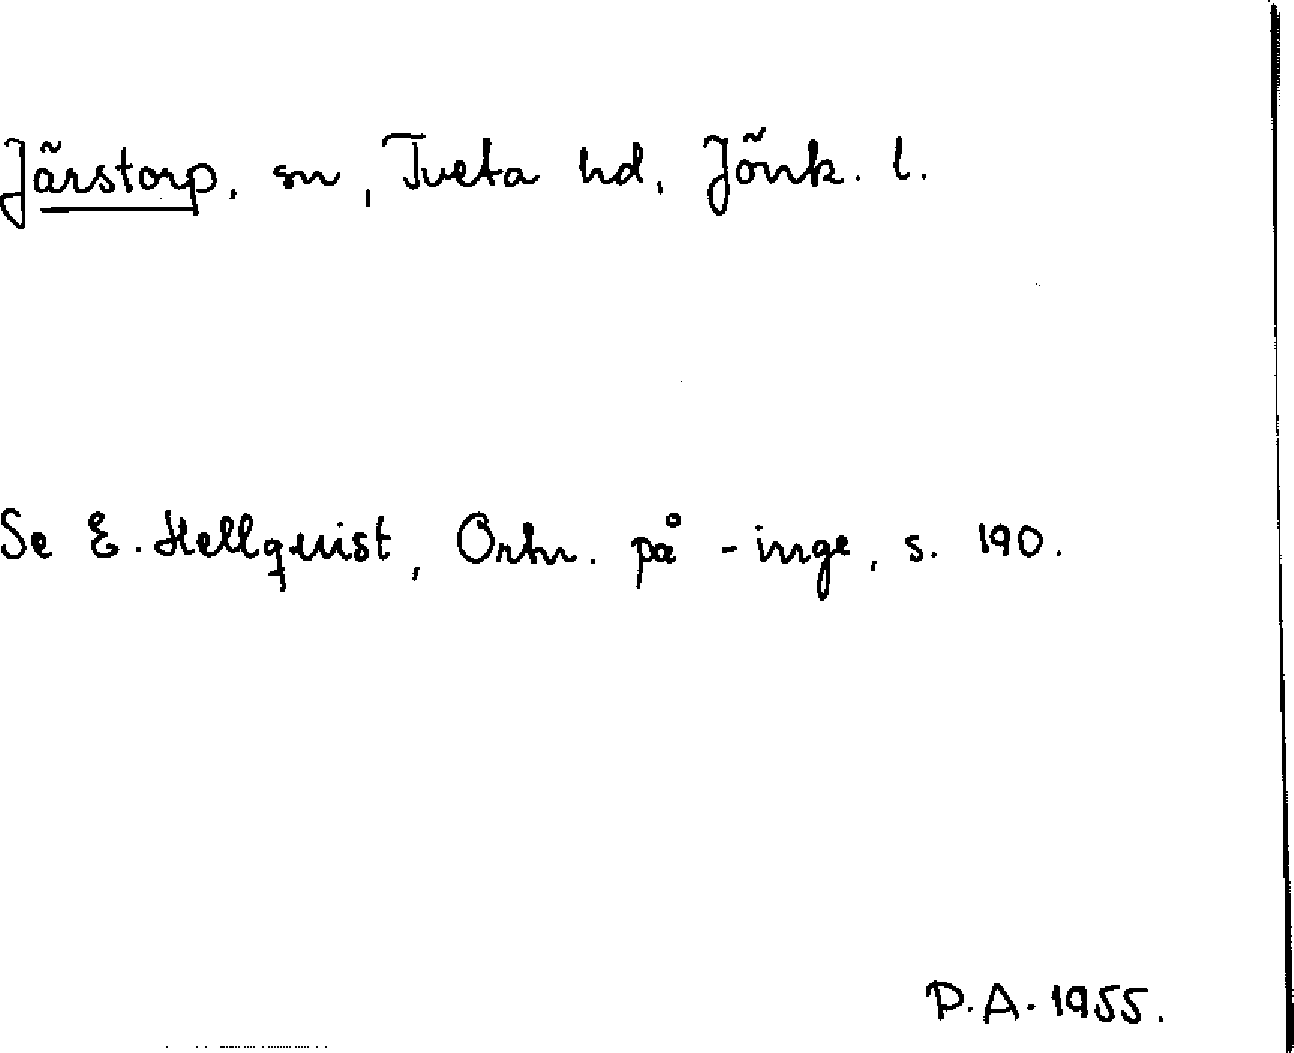 Järstorp, sn, Tveta hd, Jönk. l.
Se E. Hellquist, Ortn. på -inge, s. 190.
P.A. 1955.